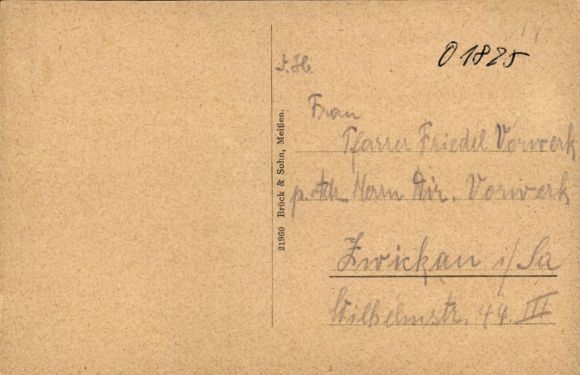 O 1825
Frau
Pfarrer Friedel Vorwerk
p. Adr. Herrn Dir. Vorwerk
Zwickau i/Sa
Wilhelmstr. 49. III
21960 Brück & Sohn, Meißen.